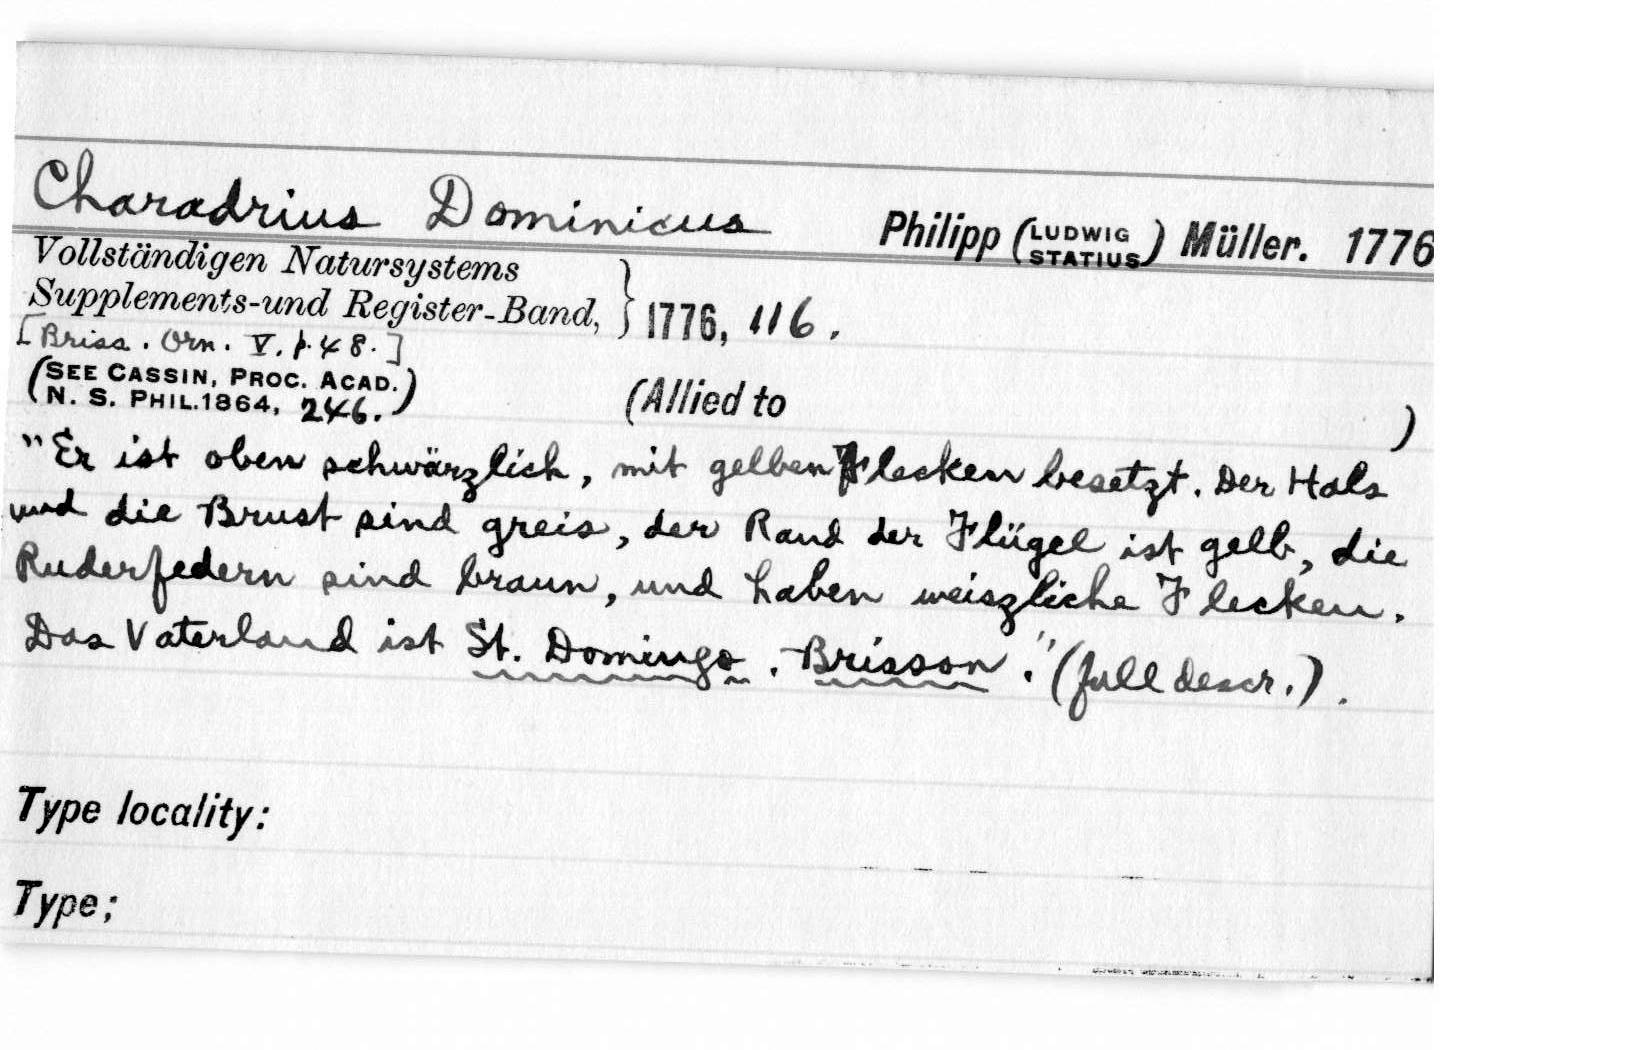 Charadrius Dominicus Philipp (LUDWIG STATIUS) Müller. 1776
Vollständigen Natursystems
Supplements-und Register-Band, } 1776, 116.
[Briss. Orn. V. p. 48.]
(SEE CASSIN, PROC. ACAD.
N. S. PHIL. 1864, 246.) (Allied to )
"Er ist oben schwärzlich, mit gelben Flecken besetzt. Der Hals
und die Brust sind greis, der Rand der Flügel ist gelb, die
Ruderfedern sind braun, und haben weiszliche Flecken.
Das Vaterland ist St. Domingo. Brisson." (full descr.).
Type locality:
Type;